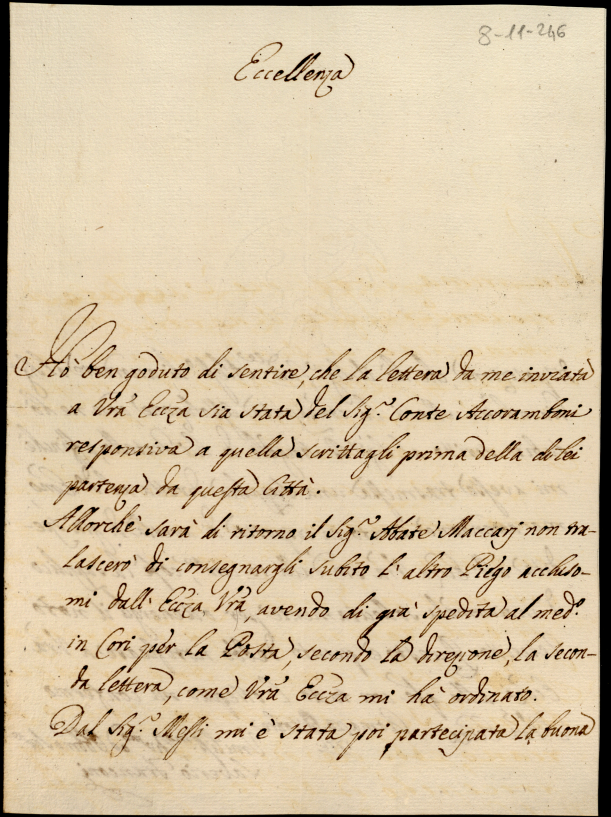 8-11-246
Eccellenza
Hò ben goduto di sentire, che la lettera da me inviata
a Vrã Eccza sia stata del Sig.r Conte Accoramboni
responsiva a quella scrittagli prima della di lei
partenza da questa Città.
Allorchè sarà di ritorno il Sig.r Abate Maccarj non tra-
lascerò di consegnargli subito l'altro Piego acchiuso-
mi dall'Eccza Vrã, avendo di già spedita al med.o
in Cori per la Posta, secondo la direzione, la secon-
da lettera, come Vrã Eccza mi hà ordinato.
Dal Sig.r mi è stata poi partecipata la buona